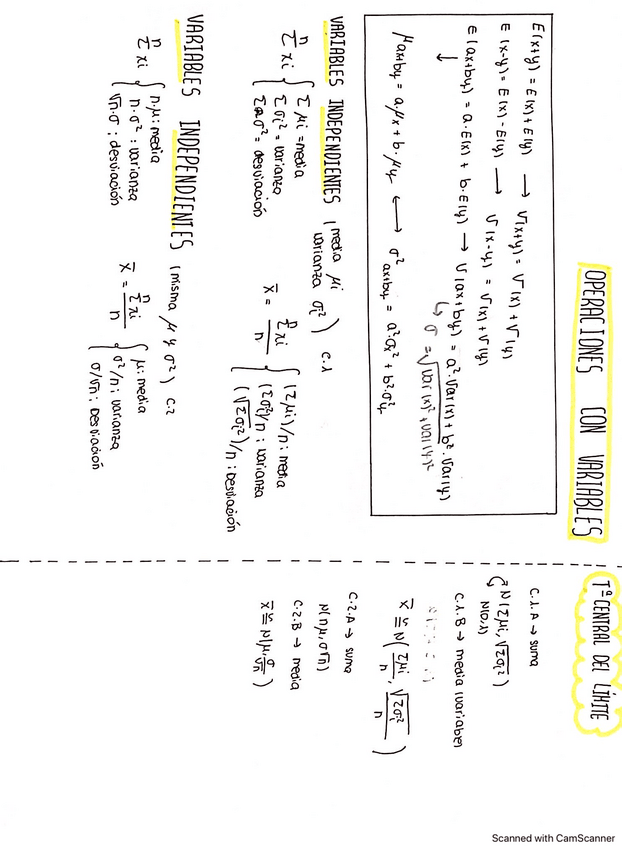 OPERACIONES CON VARIABLES
E(x+y) = E(x) + E(y) → V(x+y) = V(x) + V(y)
E(x-y) = E(x) - E(y) → V(x-y) = V(x) + V(y)
E(ax+by) = a·E(x) + b·E(y) → V(ax+by) = a²·Var(x) + b²·Var(y)
↓
↳ σ = √Var(x)² + Var(y)²
μax+by = a·μx + b·μy ⟷ σ²ax+by = a²·σx² + b²·σ²y
VARIABLES INDEPENDIENTES (media μi varianza σi²) C.1
n Σ xi { Σ μi = media
Σ σi² = varianza
σ² = desviación
X̄ = n Σ xi / n { (Σ μi)/n : media
(Σσi²)/n : varianza
(√Σσi²)/n : Desviación
VARIABLES INDEPENDIENTES (misma μ y σ²) C.2
n Σ xi { n·μ: media
n·σ² = varianza
√n·σ : desviación
X̄ = n Σ xi / n { μ: media
σ²/n : varianza
σ/√n : Desviación
Tª CENTRAL DEL LÍMITE
C.1.A → suma
N(Σμi, √Σσi²)
N(0,1)
C.1.B → media (variable)
X̄ ≅ N(Σμi/n, √Σσi²/n)
C.2.A → suma
N(nμ, σ√n)
C.2.B → media
X̄ ≅ N(μ, σ/√n)
Scanned with CamScanner